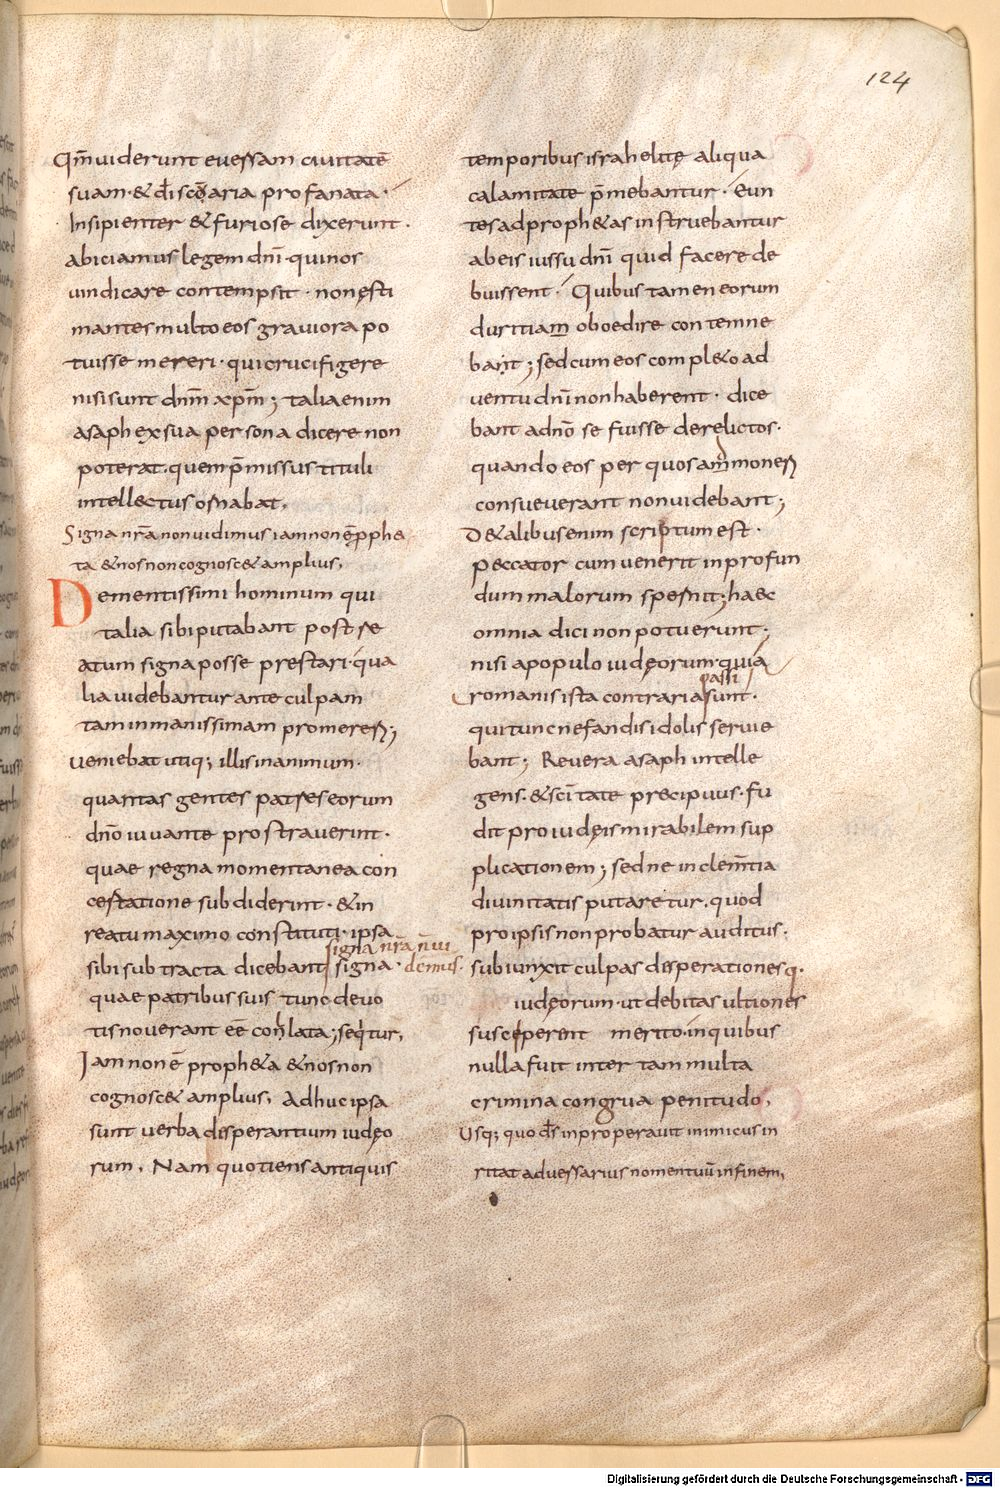 124
Qm̄ uiderunt euersam ciuitatē
suam · & dī sc̄oaria profanata ·
Insipienter & furiose dixerunt ·
abiciamus legem dnī · qui nos
uindicare contempsit · non ęsti
mantes multo eos grauiora po
tuisse mereri · qui crucifigere
nisi sunt dnm̄ xp̄m ; talia enim
asaph ex sua persona dicere non
poterat · quem p̄missus tituli
intellectus ornabat ·
Signa nr̄a non uidimus iam non ē pphe
ta & nos non cognosc& amplius ,
Dementissimi hominum qui
talia sibi putabant post re
atum signa posse prestari · qua
lia uidebantur ante culpam
tam inmanissimam promereri ;
ueniebat utiq; illis in animum ·
quantas gentes patres eorum
dn̄o iuuante prostrauerint ·
quae regna momentanea con
certatione subdiderint · & in
reatu maximo constituti · ipsa
signa nr̄a n̄ ui
dimus ·
sibi subtracta dicebant signa ·
quae patribus suis tunc deuo
tis nouerant eē conlata ; seqtur ,
Iam non ē proph&a & nos non
cognosc& amplius , Adhuc ipsa
sunt uerba disperantium iudęo
rum , Nam quotiens antiquis
temporibus israhelitę aliqua
calamitate p̄mebantur · eun
tes ad proph&as instruebantur
ab eis iussu dnī quid facere de
buissent · Quibus tamen eorum
duritiam oboedire contemne
bant ; sed cum eos compl&o ad
uentu dnī non haberent · dice
bant a dn̄o se fuisse derelictos ·
quando eos per quos ammoneri
consueuerant non uidebant ;
D& alibus enim scriptum est ·
peccator cum uenerit in profun
dum malorum spernit ; haec
omnia dici non potuerunt ;
nisi a populo iudęorum · quia
passi
romanis ista contraria sunt ·
qui tunc nefandis idolis seruie
bant ; Reuera asaph intelle
gens · & sc̄itate precipuus · fu
dit pro iudęis mirabilem sup
plicationem ; sed ne inclem̄tia
diuinitatis putaretur · quod
pro ipsis non probatur auditus ·
subiunxit culpas disperationesq ·
iudęorum · ut debitas ultiones
susceperent merito · in quibus
nulla fuit inter tam multa
crimina congrua penitudo ,
Usq; quo ds̄ inproperauit inimicus in
ritat aduersarius nomen tuū in finem ,
Digitalisierung gefördert durch die Deutsche Forschungsgemeinschaft - DFG